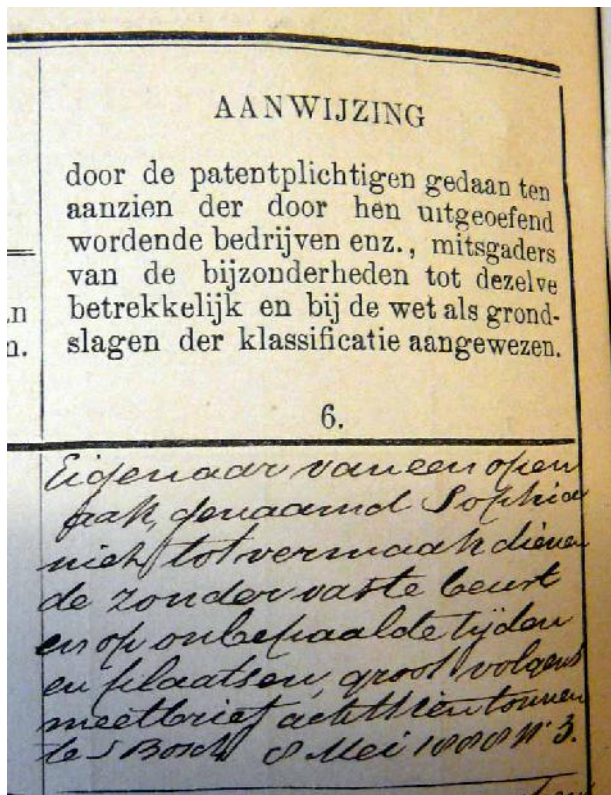 AANWIJZING
door de patentplichtigen gedaan ten
aanzien der door hen uitgeoefend
wordende bedrijven enz., mitsgaders
van de bijzonderheden tot dezelve
betrekkelijk en bij de wet als grond-
slagen der klassificatie aangewezen.
6.
n.
Eigenaar van een open
aak, genaamd Sophia
niet tot vermaak dienen
de zonder vaste beurt
en op onbepaalde tijden
en plaatsen, groot volgens
meetbrief achttien tonnen
te s Bosch 8 Mei 1888 No 3.